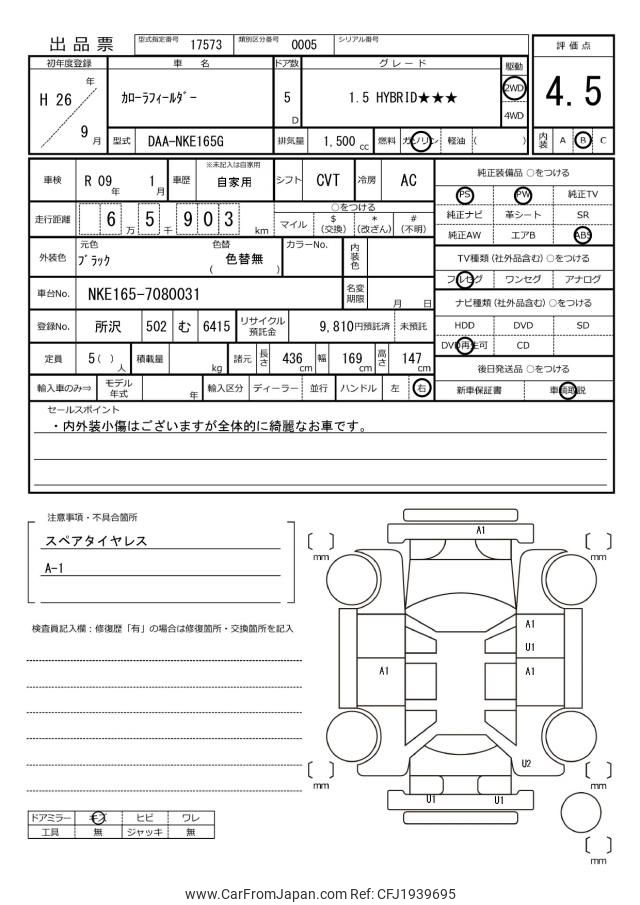 出品票
型式指定番号 17573 類別区分番号 0005 シリアル番号
評価点
4.5
内装 A B C
初年度登録 車名 ドア数 グレード 駆動
H 26 年 9 月
カローラフィールダー
5 D
1.5 HYBRID★★★
2WD
4WD
型式 DAA-NKE165G 排気量 1,500 cc 燃料 ガソリン 軽油 ( )
車検 R 09 年 1 月 車歴 ※未記入は自家用 自家用 シフト CVT 冷房 AC
走行距離 6 5 9 0 3 万 千 km
○をつける
マイル $(交換) *(改ざん) #(不明)
外装色 元色 ブラック 色替 ( 色替無 ) カラーNo. 内装色
車台No. NKE165-7080031 名変期限 月 日
登録No. 所沢 502 む 6415 リサイクル預託金 9,810円預託済 未預託
定員 5( ) 人 積載量 kg 諸元 長さ 436 cm 幅 169 cm 高さ 147 cm
輸入車のみ⇒ モデル年式 年 輸入区分 ディーラー 並行 ハンドル 左 右
純正装備品 ○をつける
PS PW 純正TV
純正ナビ 革シート SR
純正AW エアB ABS
TV種類(社外品含む) ○をつける
フルセグ ワンセグ アナログ
ナビ種類(社外品含む) ○をつける
HDD DVD SD
DVD再生可 CD
後日発送品 ○をつける
新車保証書 車輌取説
セールスポイント
・内外装小傷はございますが全体的に綺麗なお車です。
注意事項・不具合箇所
スペアタイヤレス
A-1
検査員記入欄：修復歴「有」の場合は修復箇所・交換箇所を記入
ドアミラー キズ ヒビ ワレ
工具 無 ジャッキ 無
A1
mm
mm
A1
U1
A1
A1
U2
mm
mm
U1 U1
mm
www.CarFromJapan.com Ref: CFJ1939695